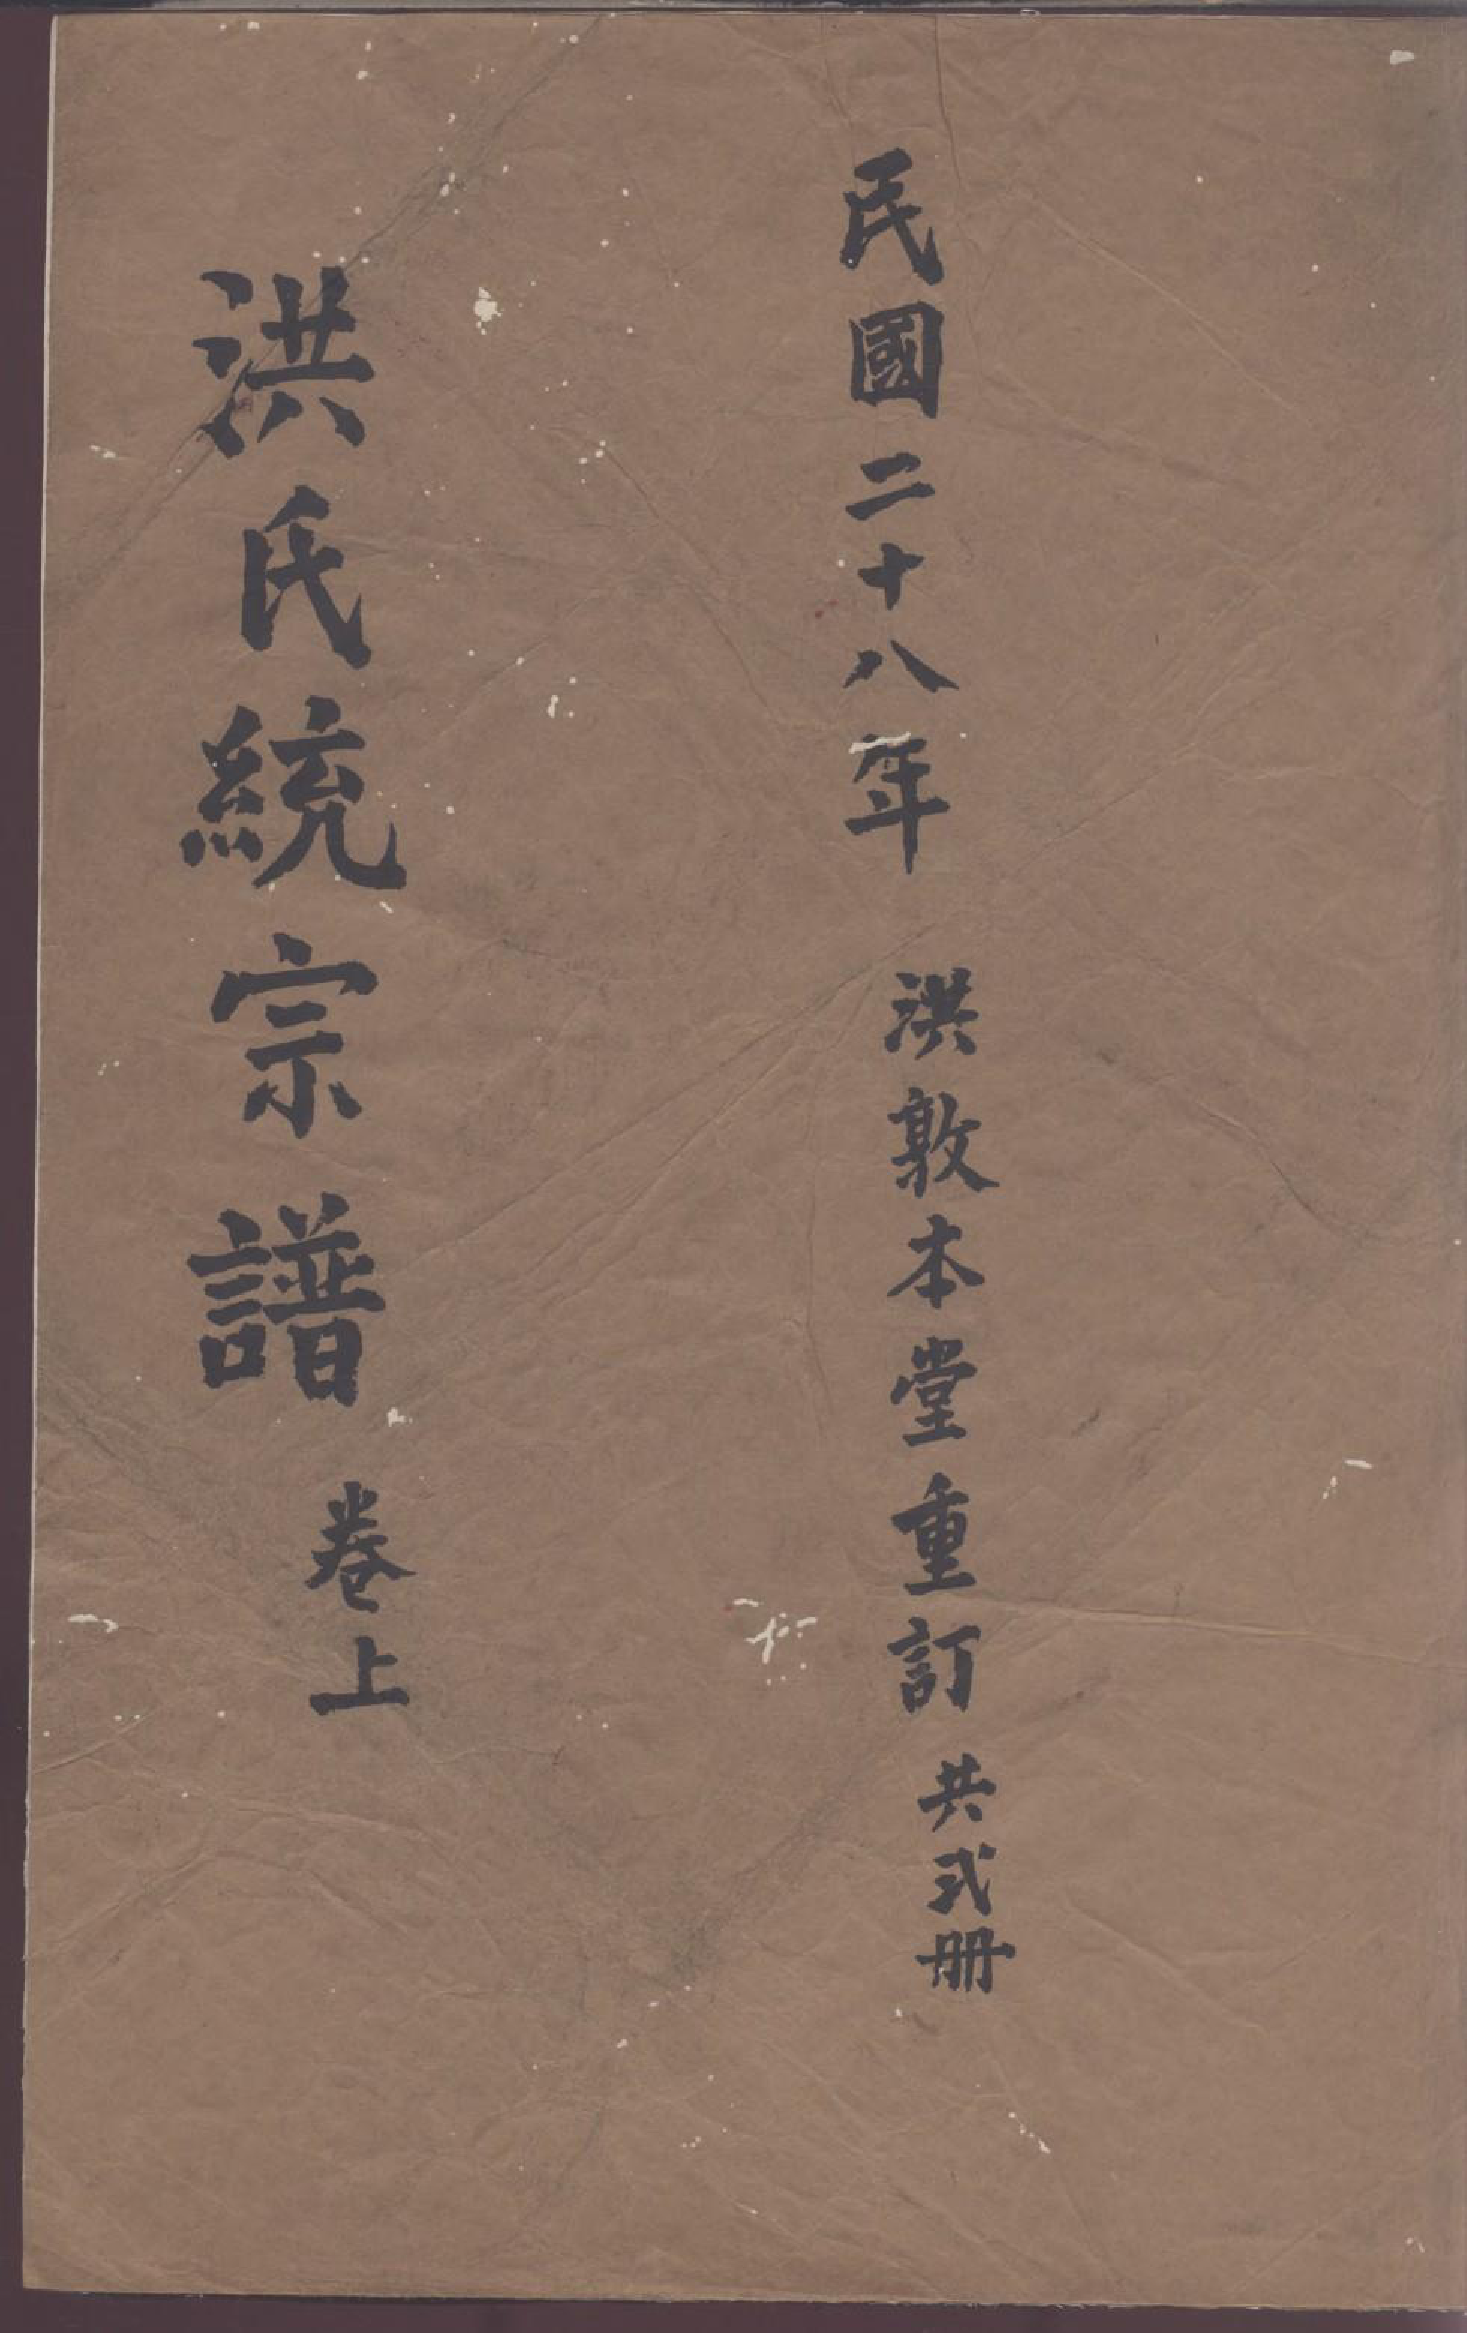 民國二十八年 洪敦本堂重訂 共弍册
洪氏統宗譜 卷上